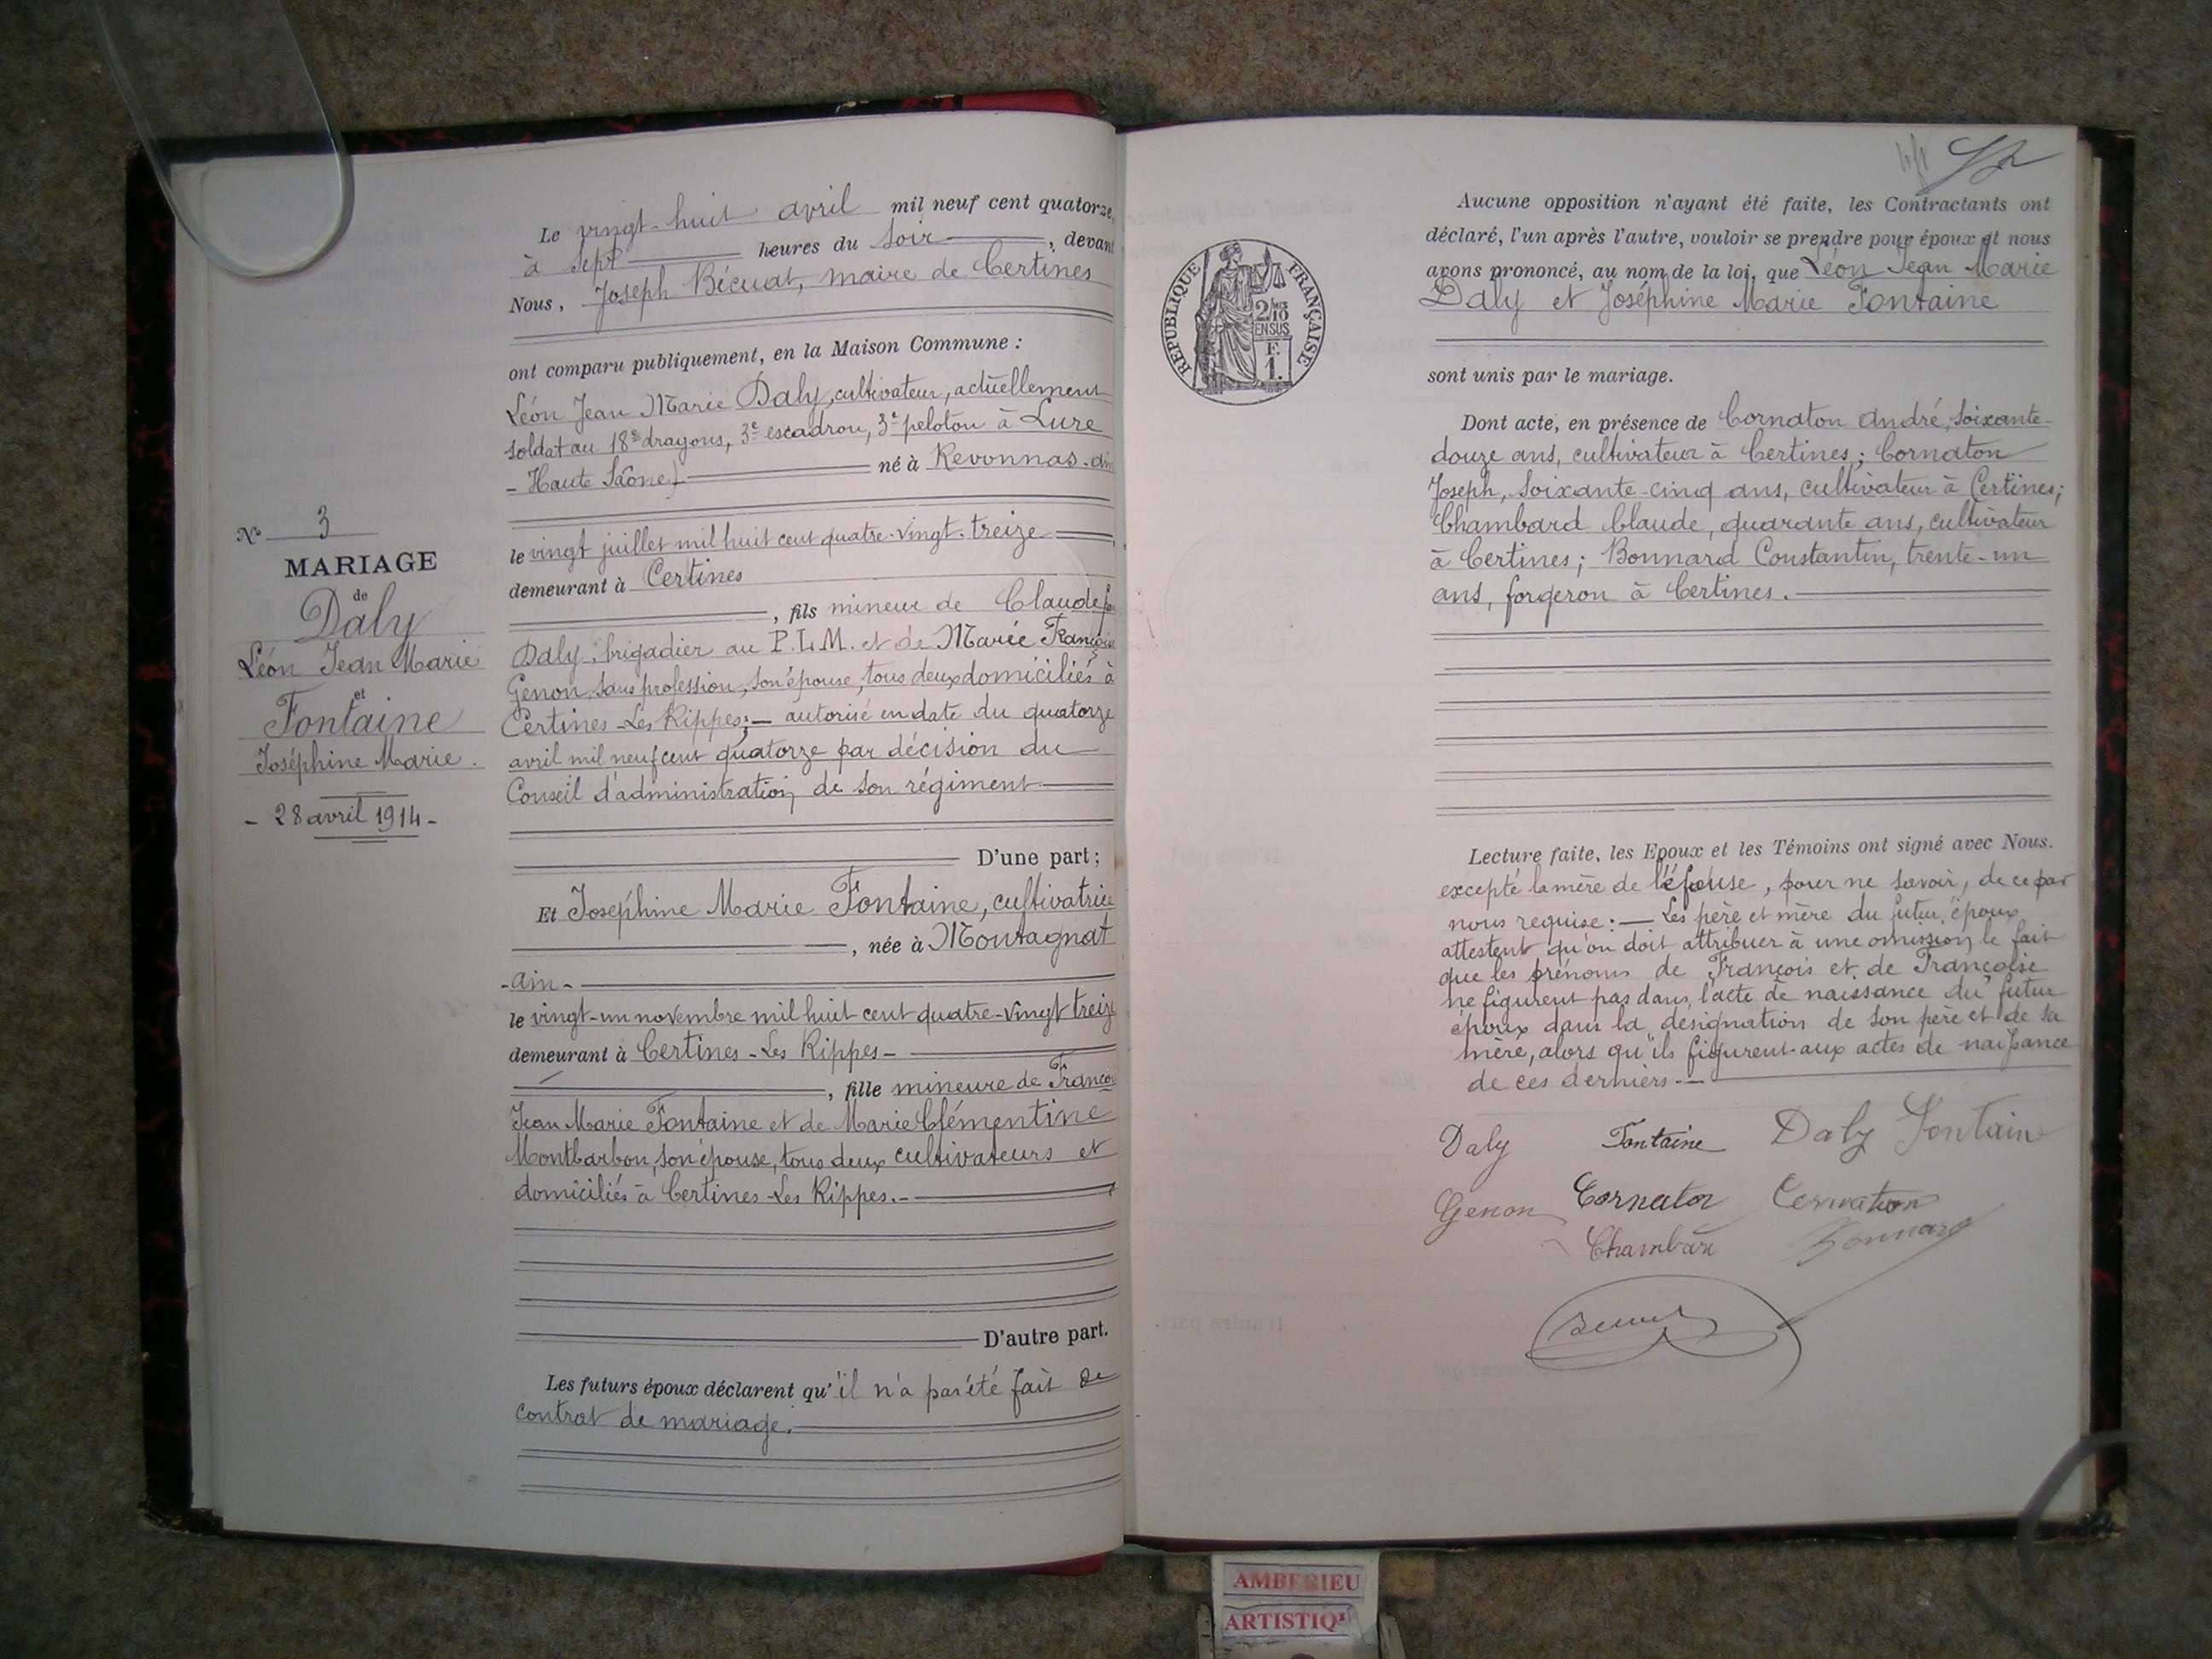 Le vingt-huit avril mil neuf cent quatorze,
à sept heures du soir, devant
Nous, Joseph Bécuat, maire de Certines
ont comparu publiquement, en la Maison Commune :
Léon Jean Marie Daly, cultivateur, actuellement
soldat au 18e dragons, 3e escadron, 3e peloton à Lure
- Haute Saône) né à Revonnas - ain
le vingt juillet mil huit cent quatre-vingt-treize
demeurant à Certines
, fils mineur de Claude
Daly, brigadier au P.L.M. et de Marie Françoise
Genon, sans profession, son épouse, tous deux domiciliés à
Certines-Les Rippes; — autorisé en date du quatorze
avril mil neuf cent quatorze par décision du
Conseil d'administration de son régiment
D'une part ;
Et Joséphine Marie Fontaine, cultivatrice
, née à Montagnat
- ain -
le vingt-un novembre mil huit cent quatre-vingt treize
demeurant à Certines - Les Rippes -
, fille mineure de François
Jean Marie Fontaine et de Marie Clémentine
Montbarbon, son épouse, tous deux cultivateurs et
domiciliés à Certines-Les Rippes. -
D'autre part.
Les futurs époux déclarent qu'il n'a pas été fait de
contrat de mariage.
N° 3
MARIAGE
de
Daly
Léon Jean Marie
et
Fontaine
Joséphine Marie.
- 28 avril 1914 -
REPUBLIQUE FRANÇAISE
2/10
EN SUS
F.
1.
Aucune opposition n'ayant été faite, les Contractants ont
déclaré, l'un après l'autre, vouloir se prendre pour époux et nous
avons prononcé, au nom de la loi, que Léon Jean Marie
Daly et Joséphine Marie Fontaine
sont unis par le mariage.
Dont acte, en présence de Cornaton André, soixante-
douze ans, cultivateur à Certines ; Cornaton
Joseph, soixante-cinq ans, cultivateur à Certines ;
Chambard Claude, quarante ans, cultivateur
à Certines ; Bonnard Constantin, trente-un
ans, forgeron à Certines.
Lecture faite, les Epoux et les Témoins ont signé avec Nous.
excepté la mère de l'épouse, pour ne savoir, de ce par
nous requise : — Les père et mère du futur époux
attestent qu'on doit attribuer à une omission le fait
que les prénoms de François et de Françoise
ne figurent pas dans l'acte de naissance du futur
époux dans la désignation de son père et de sa
mère, alors qu'ils figurent aux actes de naissance
de ces derniers. —
Daly Fontaine Daly Fontain
Genon Cornaton Cornaton
Chambard Bonnard
AMBERIEU
ARTISTIQ